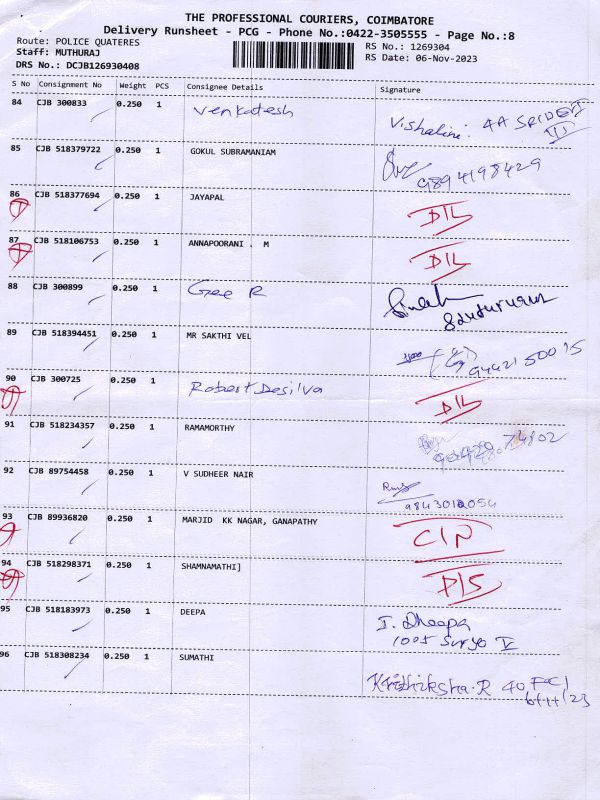 THE PROFESSIONAL COURIERS, COIMBATORE
Delivery Runsheet - PCG - Phone No.:0422-3505555 - Page No.:8
Route: POLICE QUATERES RS No.: 1269304
Staff: MUTHURAJ RS Date: 06-Nov-2023
DRS No.: DCJB126930408
S No Consignment No Weight PCS Consignee Details Signature
84 CJB 300833 0.250 1 Venkatesh Vishalini. 4A SRIDEVI
85 CJB 518379722 0.250 1 GOKUL SUBRAMANIAM 9894198429
86 CJB 518377694 0.250 1 JAYAPAL D/L
87 CJB 518106753 0.250 1 ANNAPOORANI . M D/L
88 CJB 300899 0.250 1 Gee R
89 CJB 518394451 0.250 1 MR SAKTHI VEL 9442150015
90 CJB 300725 0.250 1 Robert Desilva D/L
91 CJB 518234357 0.250 1 RAMAMORTHY 74802
92 CJB 89754458 0.250 1 V SUDHEER NAIR
93 CJB 89936820 0.250 1 MARJID KK NAGAR, GANAPATHY C/N
94 CJB 518298371 0.250 1 SHAMNAMATHI] D/S
95 CJB 518183973 0.250 1 DEEPA I. Dheepa
1005 Surya V
96 CJB 518308234 0.250 1 SUMATHI Krithiksha.R 40 FCI
6/11/23